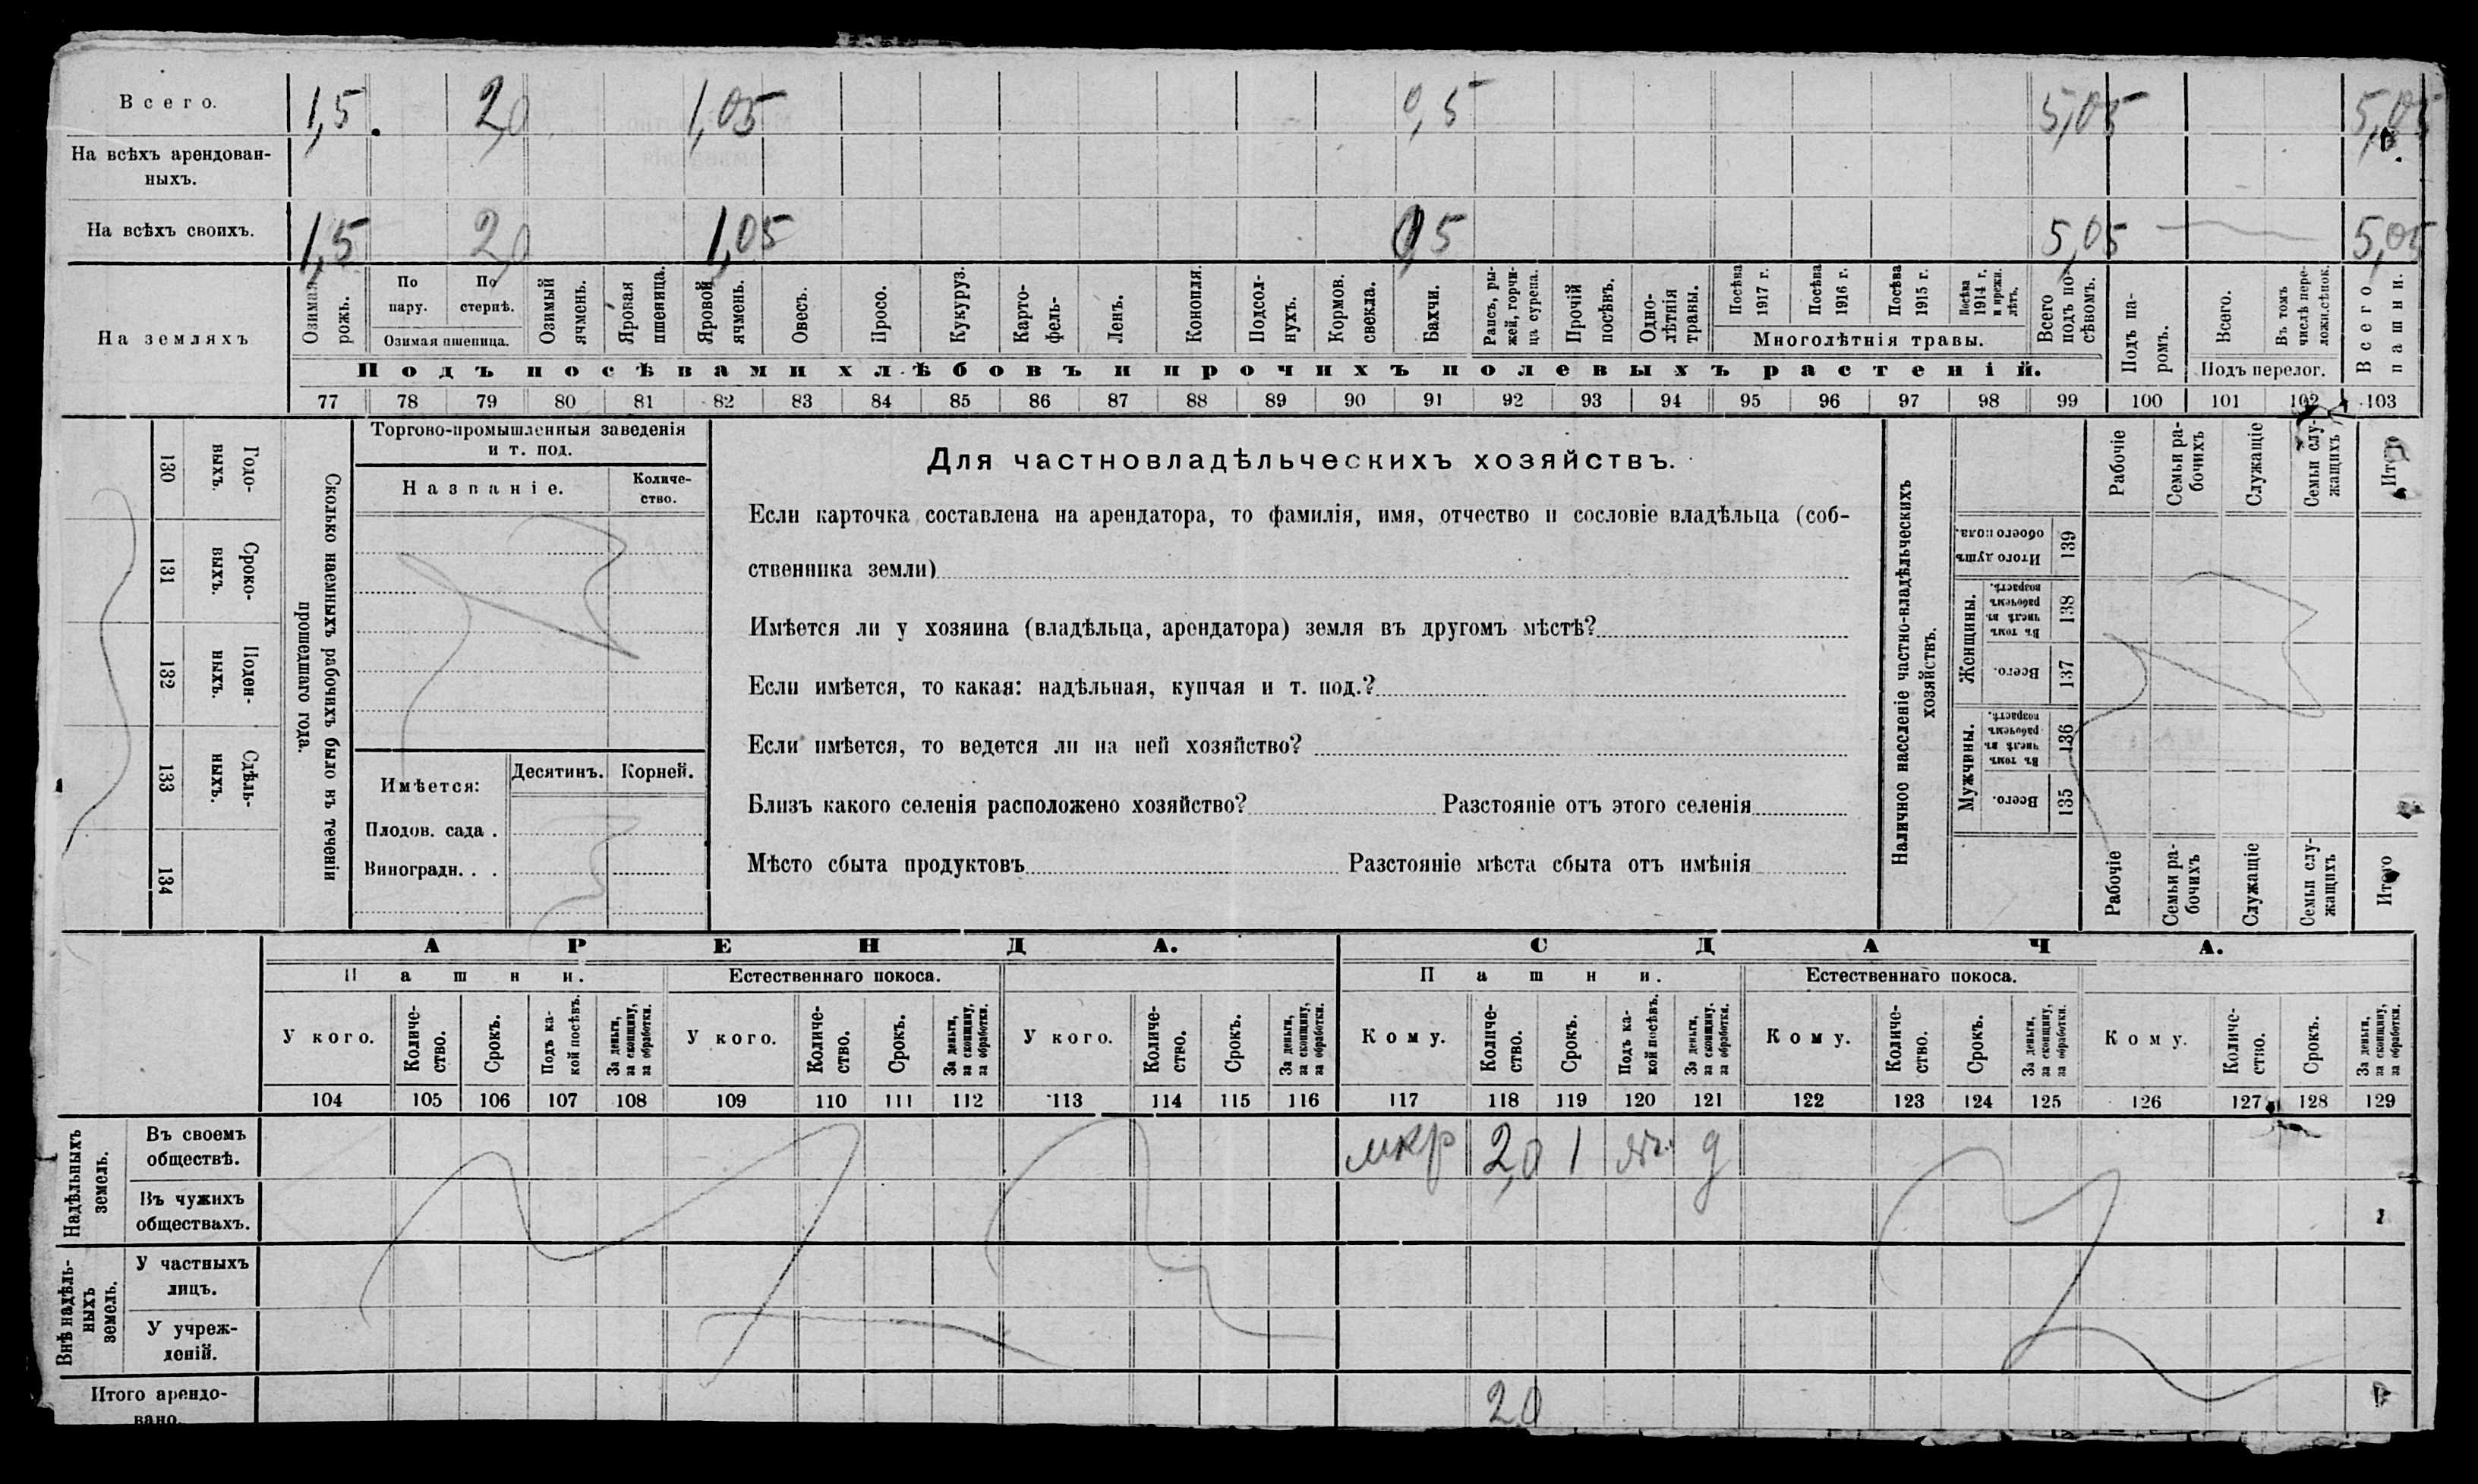 Всего. 1,5 2,0 1,05 0,5 5,05 5,05
На всѣхъ арендован-
ныхъ.
На всѣхъ своихъ. 1,5 2,0 1,05 0,5 5,05 — 5,05
На земляхъ
Озимая рожь.
По пару.
По стернѣ.
Озимая пшеница.
Озимый ячмень.
Яровая пшеница.
Яровой ячмень.
Овесъ.
Просо.
Кукуруз.
Карто-
фель-
Ленъ.
Конопля.
Подсол-
нухъ.
Кормов.
свекла.
Бахчи.
Рапсъ, ры-
жей, горчи-
ца сурепа.
Прочій
посѣвъ.
Одно-
лѣтнія
травы.
Посѣва
1917 г.
Посѣва
1916 г.
Посѣва
1915 г.
Посѣва
1914 г.
и прежн.
лѣтъ.
Многолѣтнія травы.
Всего
подъ по-
сѣвомъ.
Подъ па-
ромъ.
Всего.
Въ томъ
числѣ пере-
ложн.сѣнок.
Подъ перелог.
Всего
пашни.
Подъ посѣвами хлѣбовъ и прочихъ полевыхъ растеній.
77 78 79 80 81 82 83 84 85 86 87 88 89 90 91 92 93 94 95 96 97 98 99 100 101 102 103
Сколько наемныхъ рабочихъ было въ теченіи
прошедшаго года.
Годо-
выхъ.
130
Сроко-
выхъ.
131
Поден-
ныхъ.
132
Сдѣль-
ныхъ.
133
134
Торгово-промышленныя заведенія
и т. под.
Названіе.
Количе-
ство.
Имѣется:
Десятинъ.
Корней.
Плодов. сада .
Виноградн. . .
Для частновладѣльческихъ хозяйствъ.
Если карточка составлена на арендатора, то фамилія, имя, отчество и сословіе владѣльца (соб-
ственника земли)
Имѣется ли у хозяина (владѣльца, арендатора) земля въ другомъ мѣстѣ?
Если имѣется, то какая: надѣльная, купчая и т. под.?
Если имѣется, то ведется ли на ней хозяйство?
Близъ какого селенія расположено хозяйство? Разстояніе отъ этого селенія
Мѣсто сбыта продуктовъ Разстояніе мѣста сбыта отъ имѣнія
Наличное населеніе частно-владѣльческихъ
хозяйствъ.
Рабочіе
Семьи ра-
бочихъ
Служащіе
Семьи слу-
жащихъ
Итого
Итого душъ
обоего пола.
139
Женщины.
Въ томъ
числѣ въ
рабочемъ
возрастѣ.
138
Всего.
137
Мужчины.
Въ томъ
числѣ въ
рабочемъ
возрастѣ.
136
Всего.
135
Рабочіе
Семьи ра-
бочихъ
Служащіе
Семьи слу-
жащихъ
Итого
АРЕНДА. СДАЧА.
Пашни. Естественнаго покоса. Пашни. Естественнаго покоса.
У кого.
Количе-
ство.
Срокъ.
Подъ ка-
кой посѣвъ.
За деньги,
за скопщину,
за обработки.
У кого.
Количе-
ство.
Срокъ.
За деньги,
за скопщину,
за обработки.
У кого.
Количе-
ство.
Срокъ.
За деньги,
за скопщину,
за обработки.
Кому.
Количе-
ство.
Срокъ.
Подъ ка-
кой посѣвъ.
За деньги,
за скопщину.
за обработки.
Кому.
Количе-
ство.
Срокъ.
За деньги,
за скопщину,
за обработки.
Кому.
Количе-
ство.
Срокъ.
За деньги,
за скопщину,
за обработки.
104 105 106 107 108 109 110 111 112 113 114 115 116 117 118 119 120 121 122 123 124 125 126 127 128 129
Надѣльныхъ
земель.
Въ своемъ
обществѣ.
мкр 2,0 1 д
Въ чужихъ
обществахъ.
Внѣ надѣль-
ныхъ
земель.
У частныхъ
лицъ.
У учреж-
деній.
Итого арендо-
вано.
2,0